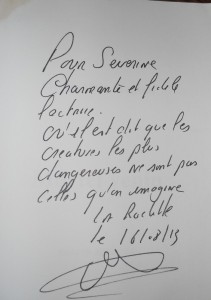 Pour Severine
Charmante et fidèle
lectrice.
où il est dit que les
créatures les plus
dangereuses ne sont pas
celles qu'on imagine
La Rochelle
le 16/08/19